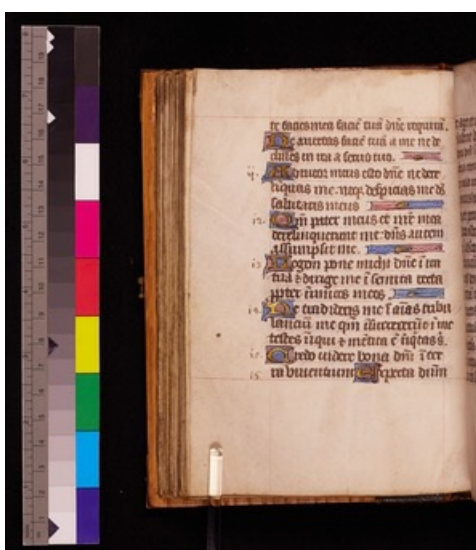 te facies mea facie tuā dñe requirā.
Ne avertas facie tuā a me ne de
clines in ira a servo tuo.
Adiutor meus esto dñe ne dere
linquas me neqz despicias me ds
salutaris meus
12. Qm pater meus et mr̄ mea
dereliquerunt me: dñs autem
assumpsit me.
13. Legem pone michi dñe ī via
tua & dirige me ī semita recta
ppter īimicos meos
14. Ne tradideris me ī aīas tribu
lanciū me qm īsurrexerūt ī me
testes iniqui & mētita ē īiqtas s̄.
Credo videre bona dñi ī ter
15. ra viventium Expecta dñm